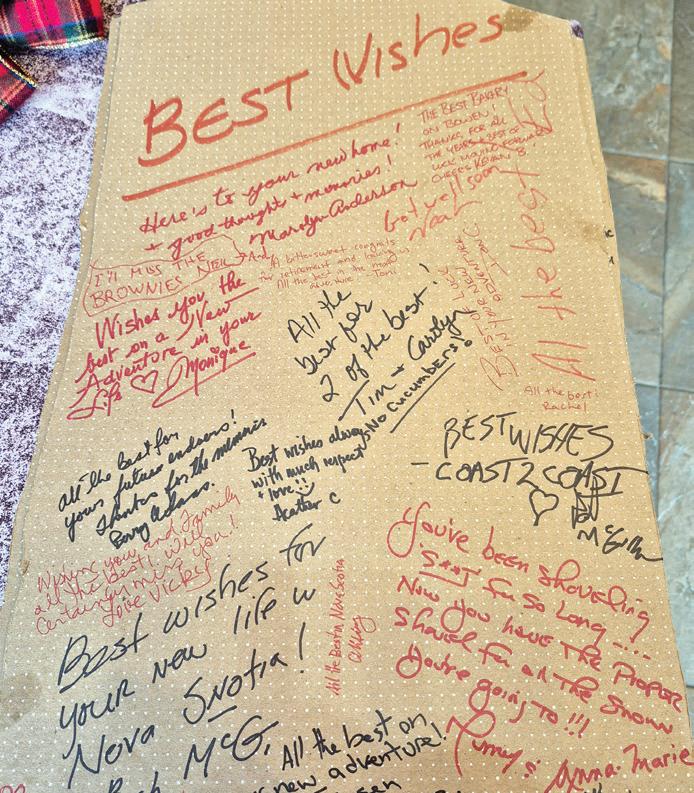 BEST Wishes
Here's to your new home!
+ good thoughts + memories!
Marolyn Anderson
THE BEST BAKERY
ON BOWEN!
THANKS FOR ALL
THE YEARS & BEST OF
LUCK MOVING FORWARD
CHEERS KEVAN B.
All the best
Get well soon
Noah
I'll MISS THE
BROWNIES NEIL
A bittersweet congrats
for retirement and
All the best in the
adventure Toni
BEST OF LUCK
IN YOUR NEW
ADVENTURE
Wishes you the
best on a New
Adventure in your
Life ♡ Monique
All the
best for
2 of the best!
Tim + Carolyn
No CUCUMBERS!
All the best!
Rachel
all the best for
your future endeavors!
thanks for the memories
Barry Adams.
Best wishes always
with much respect
+ love!!
Heather C
BEST WISHES
- COAST 2 COAST
♡
McG
Wishing you and Family
all the best! Will
certainly miss you!
Love Vicky
Best wishes for
your new life in
Nova Snotia!
McG.
All the Best in Nova Scotia
You've been shoveling
S**T for so long ....
Now you have the Proper
Shovel for all the Snow
You're going to!!!
Anna-Marie
All the best on
new adventure!